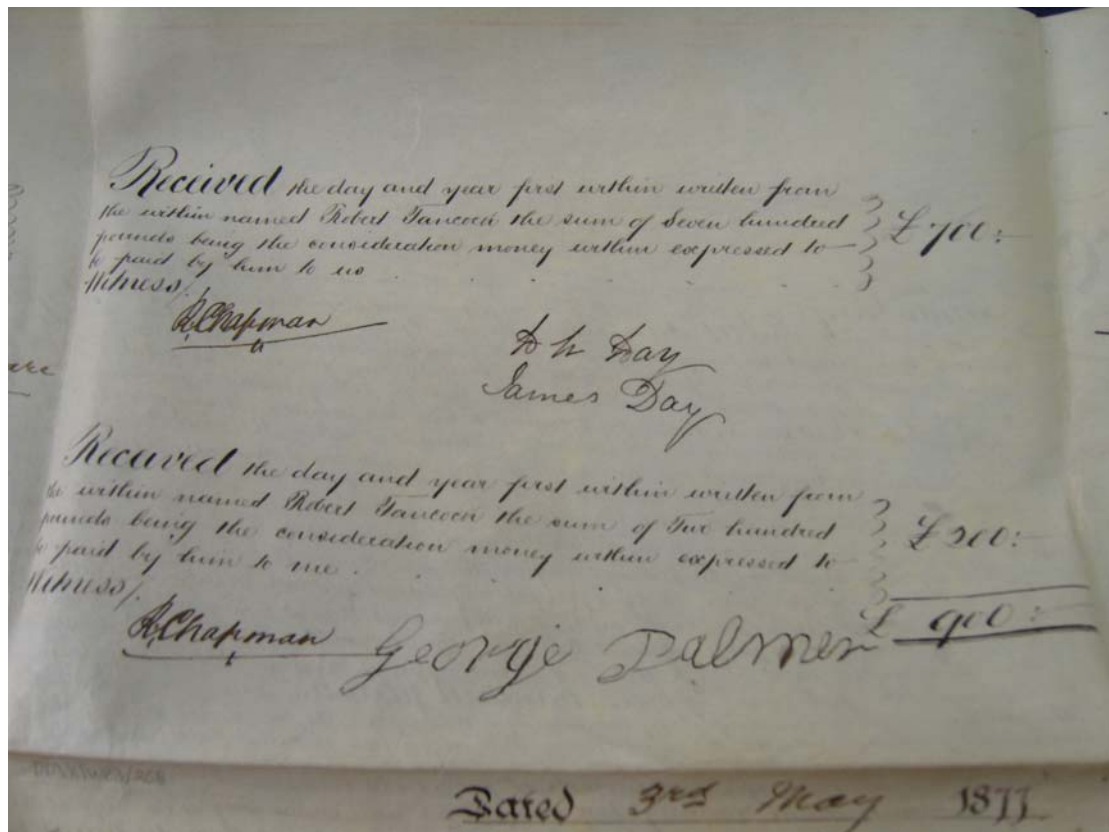 Received the day and year first within written from
the within named Robert Tancock the sum of Seven hundred
pounds being the consideration money within expressed to
be paid by him to us
£700:-
Witness/
R. Chapman
D H Day
James Day
Received the day and year first within written from
the within named Robert Tancock the sum of Two hundred
pounds being the consideration money within expressed to
be paid by him to me.
£200:-
Witness/
£ 900:-
R. Chapman George Palmer
Dated 3rd May 1877